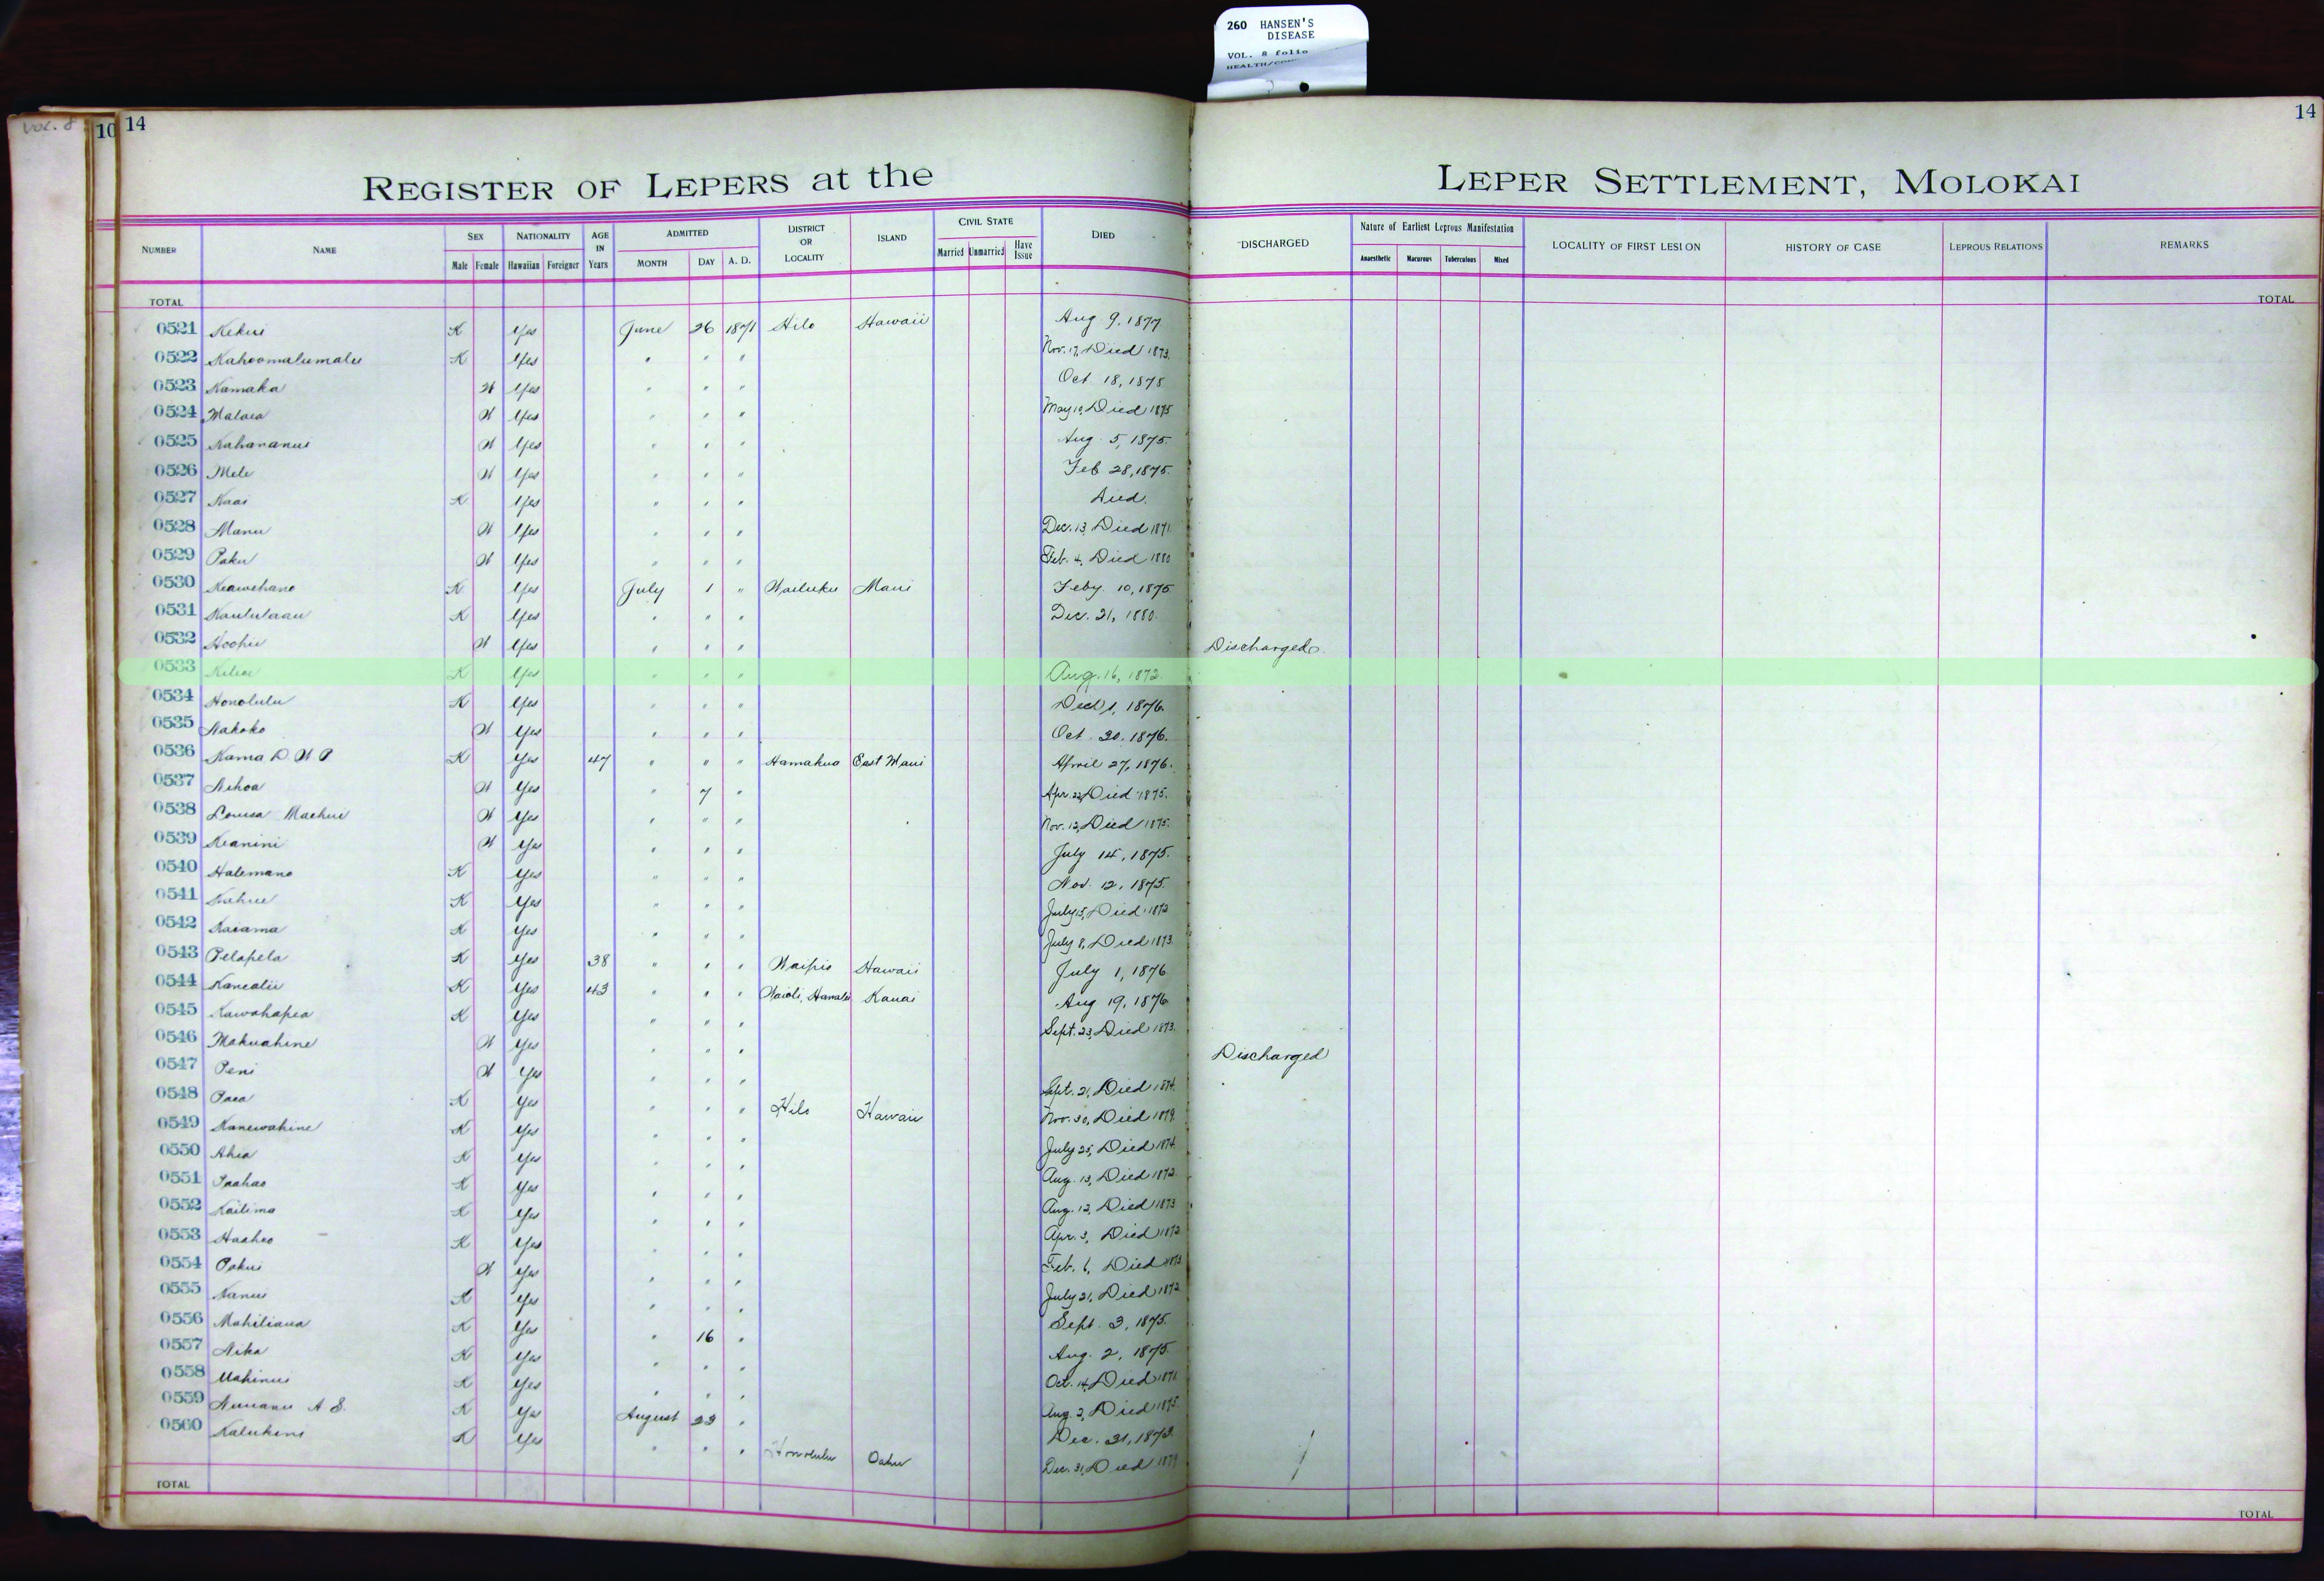 260 HANSEN'S
DISEASE
VOL. 8 folio
VOL. 8
10 14 14
REGISTER OF LEPERS at the LEPER SETTLEMENT, MOLOKAI
NUMBER NAME SEX Male Female NATIONALITY Hawaiian Foreigner AGE IN Years ADMITTED MONTH DAY A. D. DISTRICT OR LOCALITY ISLAND CIVIL STATE Married Unmarried Have Issue DIED DISCHARGED Nature of Earliest Leprous Manifestation Anaesthetic Macurous Tuberculous Mixed LOCALITY OF FIRST LESION HISTORY OF CASE LEPROUS RELATIONS REMARKS
TOTAL TOTAL
0521 Kekui K Yes June 26 1871 Hilo Hawaii Aug 9, 1877
0522 Kahoomalumalu K Yes " " " Nov. 17, Died 1873.
0523 Kamaka W Yes " " " Oct 18, 1875
0524 Malaea W Yes " " " May 10, Died 1875
0525 Kahananui W Yes " " " Aug. 5, 1875.
0526 Mele W Yes " " " Feb 28, 1875.
0527 Kaai K Yes " " " Died.
0528 Manu W Yes " " " Dec. 13, Died 1871
0529 Paku W Yes " " " Feb. 4, Died 1880
0530 Keawehano K Yes July 1 " Wailuku Maui Feby 10, 1875
0531 Kaululaau K Yes " " " Dec. 21, 1880.
0532 Hoohii W Yes " " " Discharged.
0533 K Yes " " " Aug. 16, 1872.
0534 Honolulu K Yes " " " 1, 1876.
0535 Nakoko W Yes " " " Oct. 20, 1876.
0536 Kama D. W P K Yes 47 " " " Hamakua East Maui April 27, 1876.
0537 Nihoa W Yes " 7 " Apr. 22, Died 1875.
0538 Louisa Maehui W Yes " " " Nov. 12, Died 1875.
0539 Keanini W Yes " " " July 14, 1875.
0540 Halemano K Yes " " " Nov. 12, 1875.
0541 Kahue K Yes " " " July 15, Died 1872
0542 Kaiama K Yes " " " July 8, Died 1873.
0543 Pelapela K Yes 38 " " " Waipio Hawaii July 1, 1876
0544 Kanealii K Yes 43 " " " Waioli, Hanalei Kauai Aug 19, 1876
0545 Kawahapea K Yes " " " Sept. 23, Died 1873.
0546 Makuahine W Yes " " " Discharged
0547 Peni W Yes " " " Sept. 21, Died 1874.
0548 Paea K Yes " " " Hilo Hawaii Nov. 30, Died 1879.
0549 Kanewahine K Yes " " " July 25, Died 1874.
0550 Ahia K Yes " " " Aug. 13, Died 1872.
0551 Paahao K Yes " " " Aug. 12, Died 1873
0552 Kailima K Yes " " " Apr. 3, Died 1872
0553 Haaheo K Yes " " " Feb. 6, Died 1873
0554 Pakui W Yes " " " July 21, Died 1872
0555 Nanui K Yes " " " Sept. 3, 1875.
0556 Mahiliana K Yes " 16 " Aug. 2, 1875.
0557 Nika K Yes " " " Oct. 14, Died 1871.
0558 Mahinui K Yes " " " Aug. 2, Died 1875.
0559 Nuuanu A S. K Yes August 23 " Dec. 31, 1873.
0560 Kalukini K Yes " " " Honolulu Oahu Dec. 31, Died 1879
TOTAL TOTAL